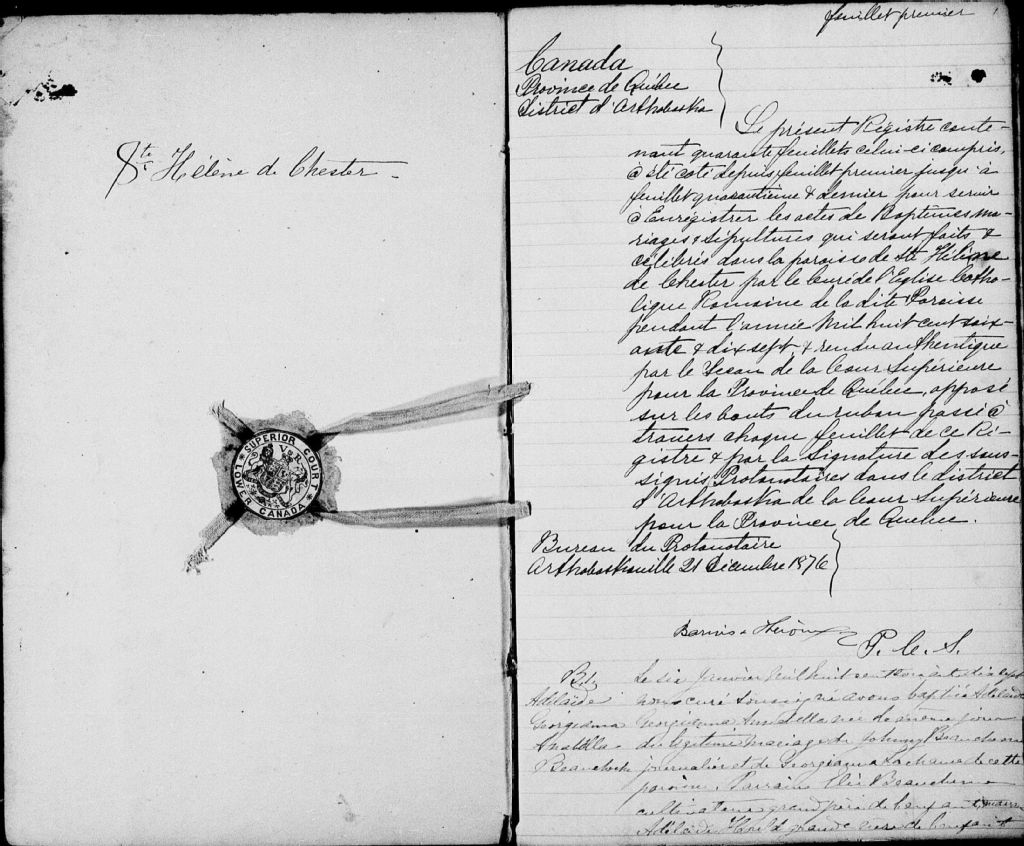 Ste Hélène de Chester
SUPERIOR COURT
V R
LOWER CANADA
feuillet premier
Canada
Province de Québec
District d'Arthabaska
Le présent Régistre conte-
nant quarante feuillets celui-ci compris,
a été coté depuis feuillet premier jusqu'à
feuillet quarantième & dernier pour servir
à Enregistrer les actes de Baptêmes ma-
riages & sépultures qui seront faits &
célébrés dans la paroisse de Ste Hélène
de Chester par le Curé de l'Eglise Catho-
lique Romaine de la dite Paroisse
pendant l'année Mil huit cent soix-
ante & dix sept, & rendu authentique
par le Sceau de la Cour Supérieure
pour la Province de Québec, apposé
sur les bouts du ruban passé à
travers chaque feuillet de ce Ré-
gistre & par la Signature des sous-
signés Protonotaires dans le district
d'Arthabaska de la Cour Supérieure
pour la Province de Quebec.
Bureau du Protonotaire
Arthabaskaville 21 Décembre 1876
Barwis & Héroux
P. C. S.
B.
Adélaïde
Georgianna
Beauchesne
Le six Janvier Mil huit cent soixante dix sept
nous curé soussigné avons baptisé Adélaïde
Georgianna née le même jour
du légitime mariage de Johnny Beauchesne
journalier et de Georgianna de cette
paroisse. Parrain Beauchesne
cultivateur grand père de l'enfant, marraine
Adélaïde Houle grande mère de l'enfant